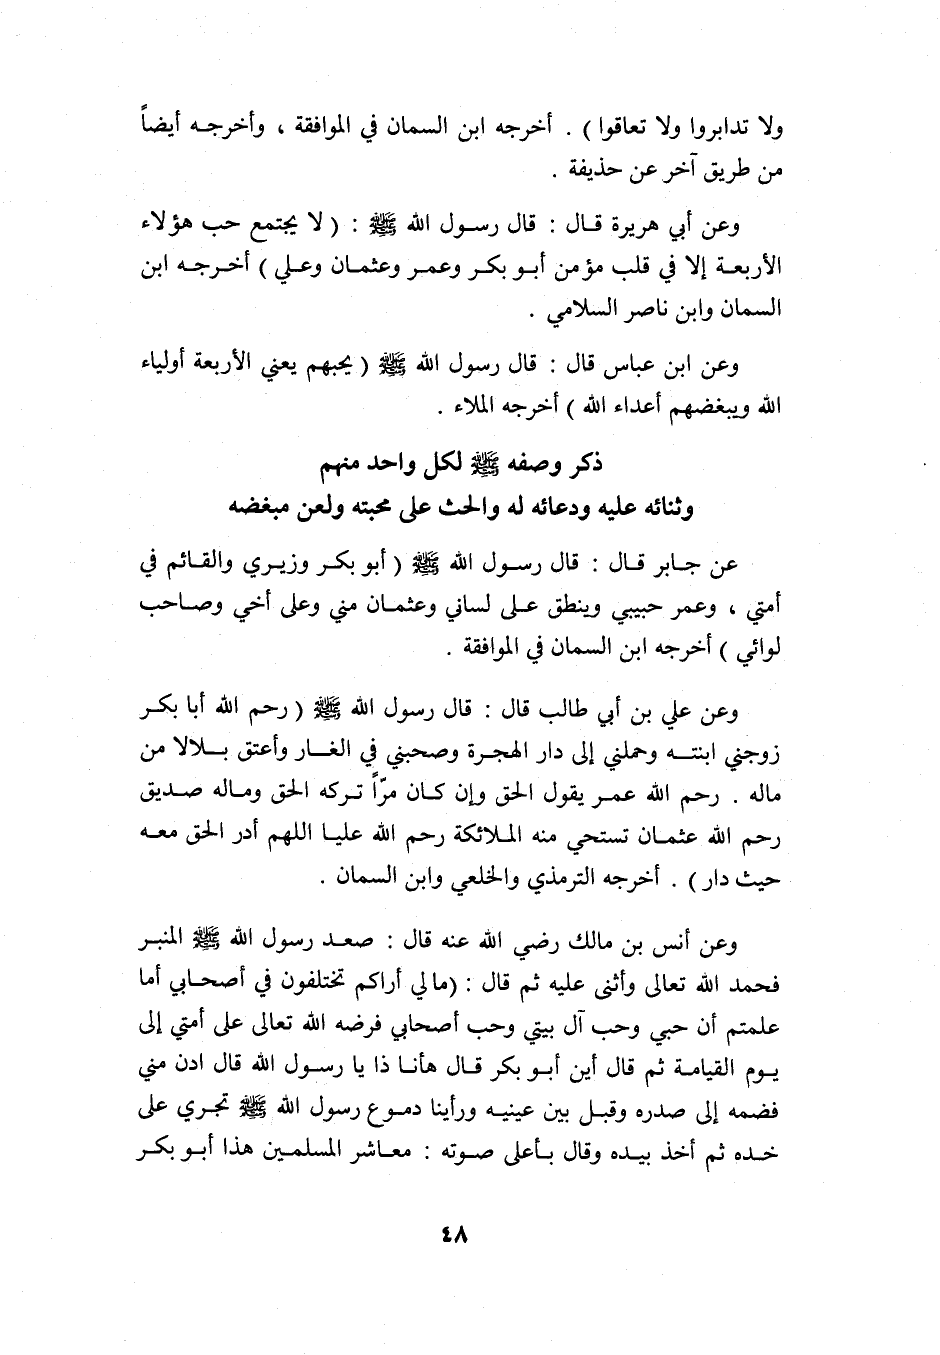 ولا تدابروا ولا تعاقوا ) . أخرجه ابن السمان في الموافقة ، وأخرجه أيضاً
من طريق آخر عن حذيفة .
وعن أبي هريرة قال : قال رسول الله ﷺ : ( لا يجتمع حب هؤلاء
الأربعة إلا في قلب مؤمن أبو بكر وعمر وعثمان وعلي ) أخرجه ابن
السمان وابن ناصر السلامي .
وعن ابن عباس قال : قال رسول الله ﷺ ( يحبهم يعني الأربعة أولياء
الله ويبغضهم أعداء الله ) أخرجه الملاء .
ذكر وصفه ﷺ لكل واحد منهم
وثنائه عليه ودعائه له والحث على محبته ولعن مبغضه
عن جابر قال : قال رسول الله ﷺ ( أبو بكر وزيري والقائم في
أمتي ، وعمر حبيبي وينطق على لساني وعثمان مني وعلى أخي وصاحب
لوائي ) أخرجه ابن السمان في الموافقة .
وعن علي بن أبي طالب قال : قال رسول الله ﷺ ( رحم الله أبا بكر
زوجني ابنته وحملني إلى دار الهجرة وصحبني في الغار وأعتق بلالا من
ماله . رحم الله عمر يقول الحق وإن كان مرّاً تركه الحق وماله صديق
رحم الله عثمان تستحي منه الملائكة رحم الله عليا اللهم أدر الحق معه
حيث دار ) . أخرجه الترمذي والخلعي وابن السمان .
وعن أنس بن مالك رضي الله عنه قال : صعد رسول الله ﷺ المنبر
فحمد الله تعالى وأثنى عليه ثم قال : (مالي أراكم تختلفون في أصحابي أما
علمتم أن حبي وحب آل بيتي وحب أصحابي فرضه الله تعالى على أمتي إلى
يوم القيامة ثم قال أين أبو بكر قال هأنا ذا يا رسول الله قال ادن مني
فضمه إلى صدره وقبل بين عينيه ورأينا دموع رسول الله ﷺ تجري على
خده ثم أخذ بيده وقال بأعلى صوته : معاشر المسلمين هذا أبو بكر
٤٨